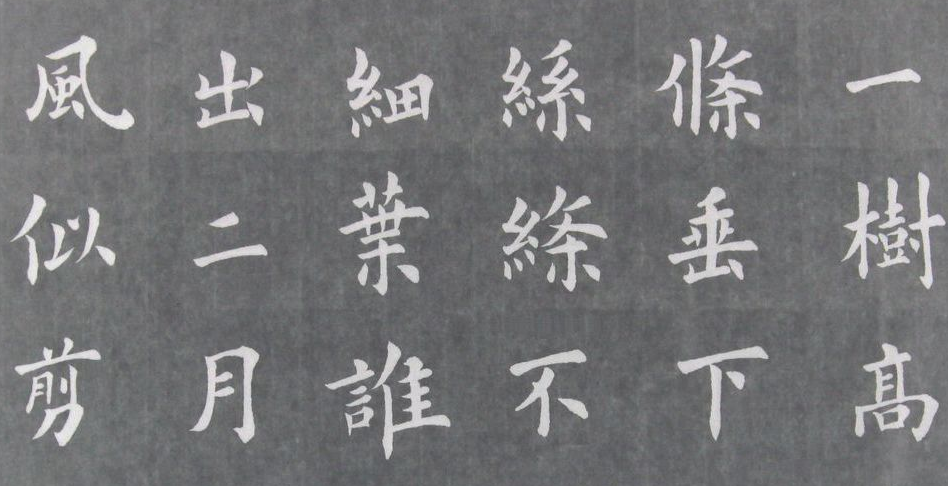 一樹髙
條垂下
絲絛不
細葉誰
出二月
風似剪